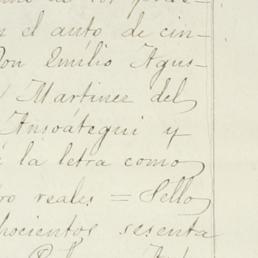 n el auto de cin-
Don Emilio Agus-
Martinez del
Ansoátegui y
é la letra como
ro reales = Sello
hocientos sesenta